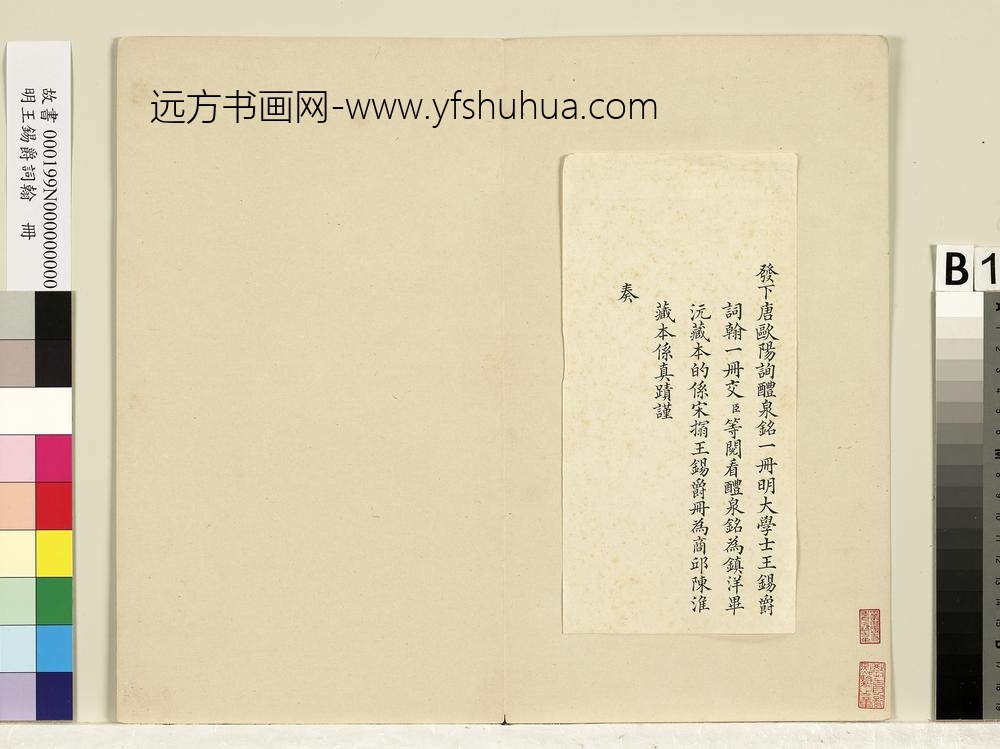 远方书画网-www.yfshuhua.com
故書 000199N000000000
明王錫爵詞翰 冊
發下唐歐陽詢醴泉銘一冊明大學士王錫爵
詞翰一冊交臣等閱看醴泉銘為鎮洋畢
沅藏本的係宋搨王錫爵冊為商邱陳淮
藏本係真蹟謹
奏
B 1